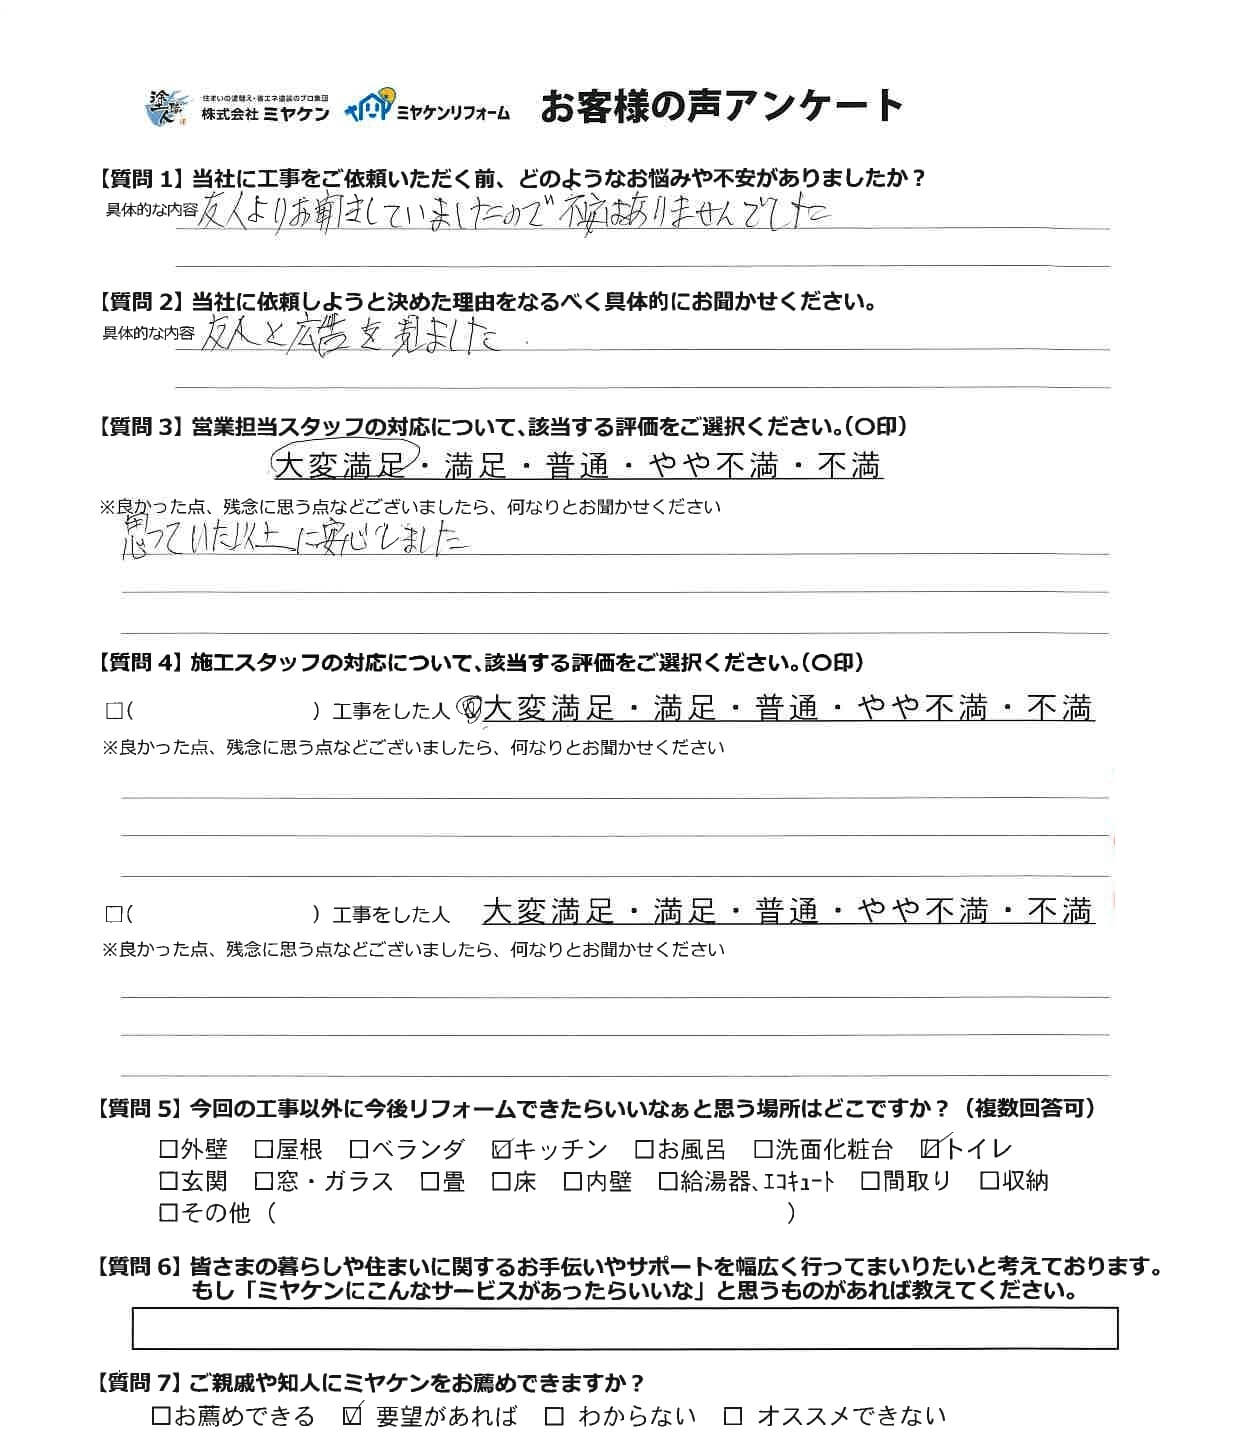 塗職人 住まいの塗替え・省エネ塗装のプロ集団
株式会社 ミヤケン ミヤケンリフォーム お客様の声アンケート
【質問 1】当社に工事をご依頼いただく前、どのようなお悩みや不安がありましたか？
具体的な内容 友人よりお聞きしていましたので 不安はありませんでした
【質問 2】当社に依頼しようと決めた理由をなるべく具体的にお聞かせください。
具体的な内容 友人と広告を見ました
【質問 3】営業担当スタッフの対応について、該当する評価をご選択ください。（〇印）
大変満足・満足・普通・やや不満・不満
※良かった点、残念に思う点などございましたら、何なりとお聞かせください
思っていた以上に安心しました
【質問 4】施工スタッフの対応について、該当する評価をご選択ください。（〇印）
□（ ）工事をした人 大変満足・満足・普通・やや不満・不満
※良かった点、残念に思う点などございましたら、何なりとお聞かせください
□（ ）工事をした人 大変満足・満足・普通・やや不満・不満
※良かった点、残念に思う点などございましたら、何なりとお聞かせください
【質問 5】今回の工事以外に今後リフォームできたらいいなぁと思う場所はどこですか？（複数回答可）
□外壁 □屋根 □ベランダ ☑キッチン □お風呂 □洗面化粧台 ☑トイレ
□玄関 □窓・ガラス □畳 □床 □内壁 □給湯器、ｴｺｷｭｰﾄ □間取り □収納
□その他（ ）
【質問 6】皆さまの暮らしや住まいに関するお手伝いやサポートを幅広く行ってまいりたいと考えております。
もし「ミヤケンにこんなサービスがあったらいいな」と思うものがあれば教えてください。
【質問 7】ご親戚や知人にミヤケンをお薦めできますか？
□お薦めできる ☑ 要望があれば □ わからない □ オススメできない